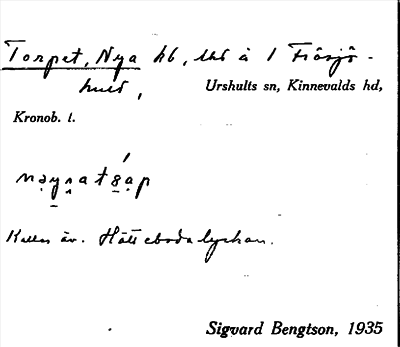 Torpet, Nya hb, lhd å 1 Frösjö-
hult,
Urshults sn, Kinnevalds hd,
Kronob. l.
Kallas äv. Hättebodalyckan.
Sigvard Bengtson, 1935